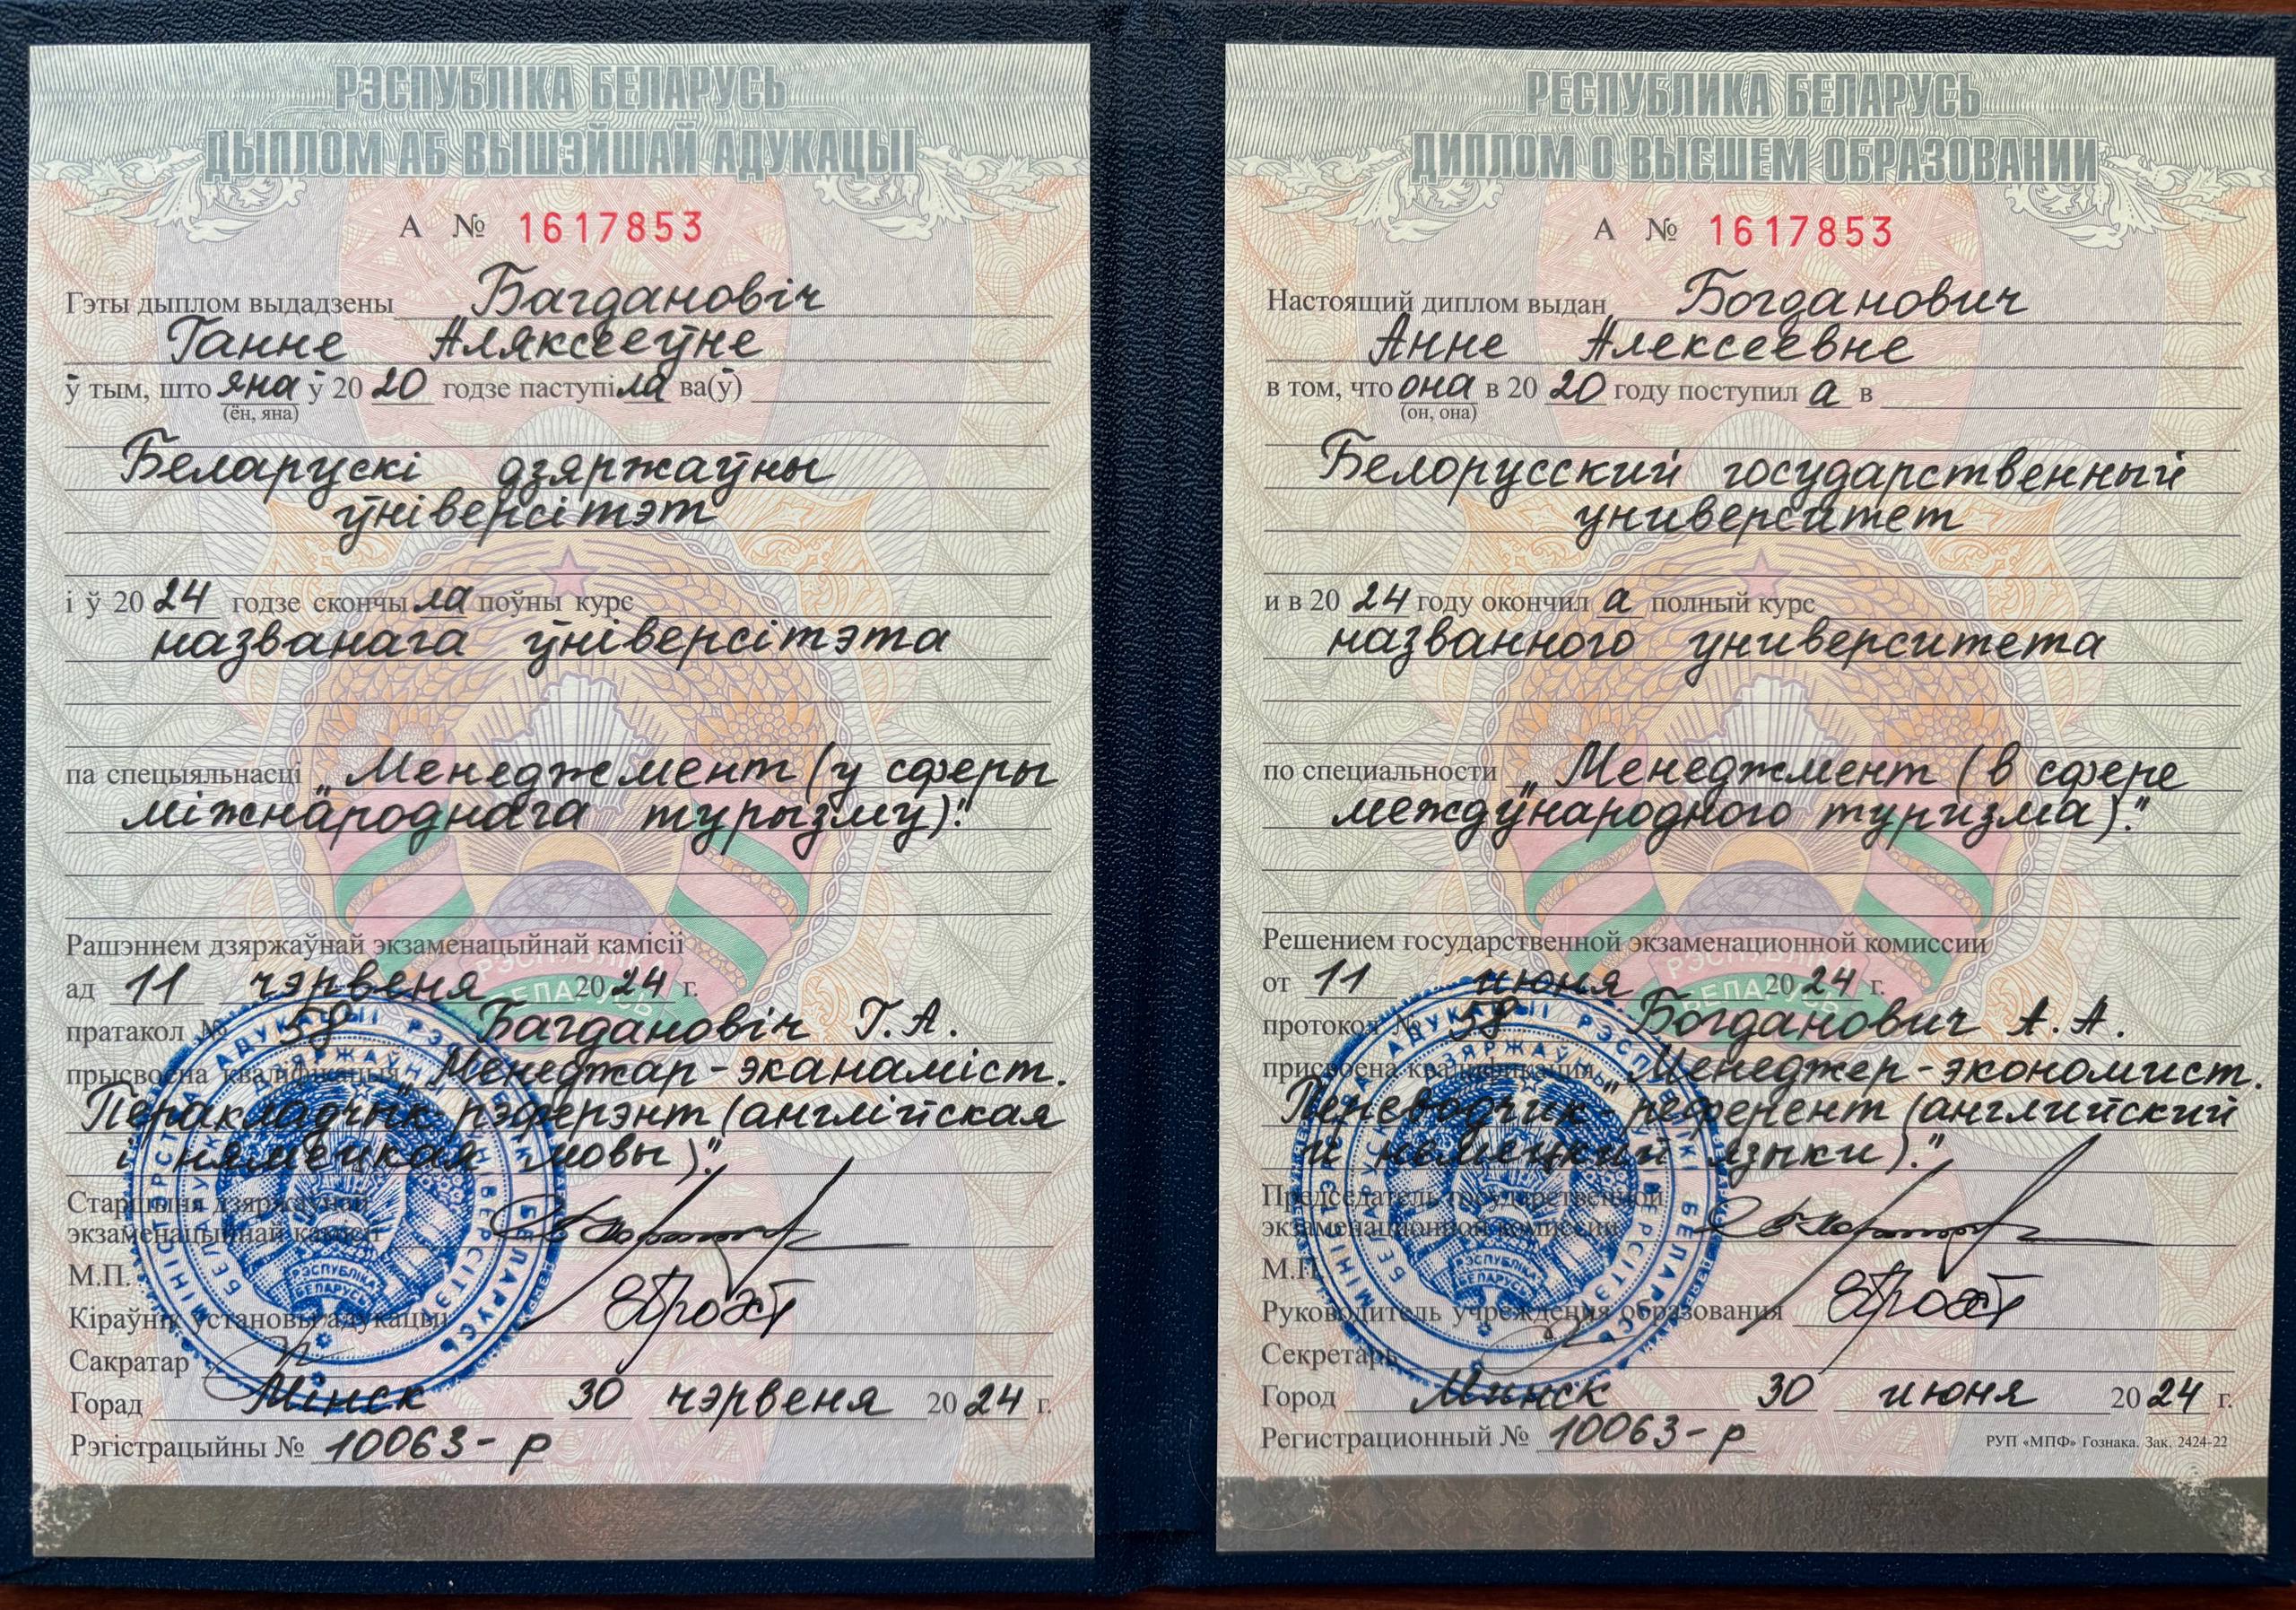 РЭСПУБЛІКА БЕЛАРУСЬ
ДЫПЛОМ АБ ВЫШЭЙШАЙ АДУКАЦЫІ
А № 1617853
Гэты дыплом выдадзены Багдановіч
Ганне Аляксееўне
ў тым, што яна ў 20 20 годзе паступіла ва(ў)
(ён, яна)
Беларускі дзяржаўны
ўніверсітэт
і ў 20 24 годзе скончы ла поўны курс
названага ўніверсітэта
па спецыяльнасці „Менеджмент (у сферы
міжнароднага турызму)."
Рашэннем дзяржаўнай экзаменацыйнай камісіі
ад 11 чэрвеня 20 24 г.
пратакол № 58 Багдановіч Г.А.
прысвоена кваліфікацыя „Менеджар-эканаміст.
Перакладчык-рэферэнт (англійская
і нямецкая мовы)."
Старшыня дзяржаўнай
экзаменацыйнай камісіі
М.П.
Кіраўнік установы адукацыі
Сакратар
Горад Мінск 30 чэрвеня 20 24 г.
Рэгістрацыйны № 10063-р
РЭСПУБЛІКА
БЕЛАРУСЬ
РЕСПУБЛИКА БЕЛАРУСЬ
ДИПЛОМ О ВЫСШЕМ ОБРАЗОВАНИИ
А № 1617853
Настоящий диплом выдан Богданович
Анне Алексеевне
в том, что она в 20 20 году поступил а в
(он, она)
Белорусский государственный
университет
и в 20 24 году окончил а полный курс
названного университета
по специальности „Менеджмент (в сфере
международного туризма)."
Решением государственной экзаменационной комиссии
от 11 июня 20 24 г.
протокол № 58 Богданович А.А.
присвоена квалификация „Менеджер-экономист.
Переводчик-референт (английский
и немецкий языки)."
Председатель государственной
экзаменационной комиссии
М.П.
Руководитель учреждения образования
Секретарь
Город Минск 30 июня 20 24 г.
Регистрационный № 10063-р
РУП «МПФ» Гознака. Зак. 2424-22
РЭСПУБЛІКА
БЕЛАРУСЬ